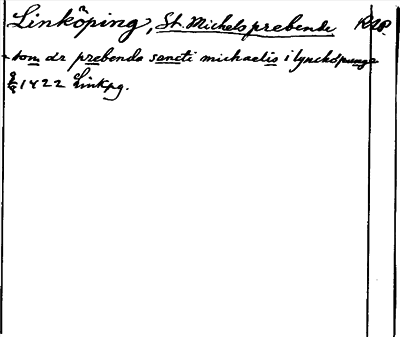 Linköping, St. Michels prebende RAP.
som är prebenda sancti michaelis i lynchöpunge
1422 Linkpg.